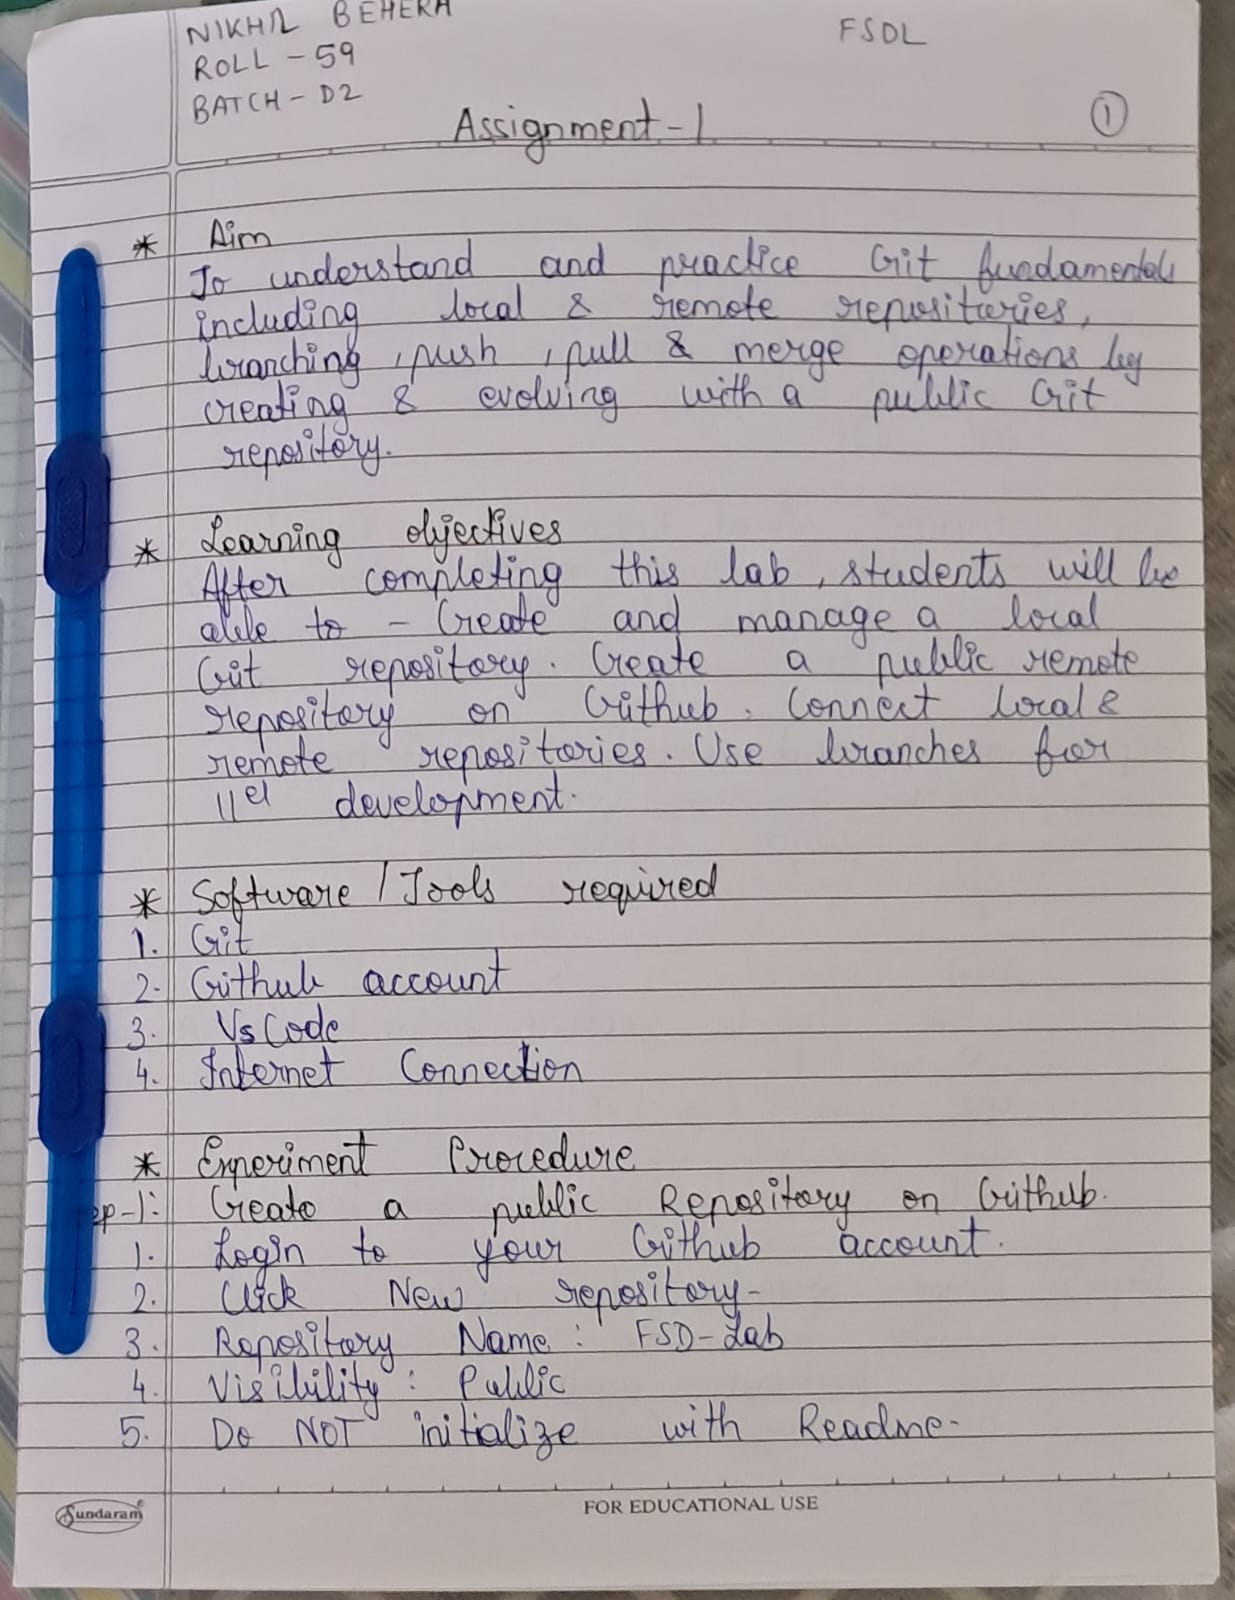 NIKHIL BEHERA
FSDL
ROLL - 59
BATCH - D2
Assignment - 1
1
* Aim
To understand and practice Git fundamentals
including local & remote repositories,
branching, push, pull & merge operations by
creating & evolving with a public Git
repository.
* Learning objectives
After completing this lab, students will be
able to - Create and manage a local
Git repository. Create a public remote
repository on Github. Connect local &
remote repositories. Use branches for
||el development.
* Software / Tools required
1. Git
2. Github account
3. Vs Code
4. Internet Connection
* Experiment Procedure
ep-1: Create a public Repository on Github.
1. Login to your Github account.
2. Click New repository.
3. Repository Name: FSD-Lab
4. Visibility: Public
5. Do NOT initialize with Readme.
Sundaram
FOR EDUCATIONAL USE